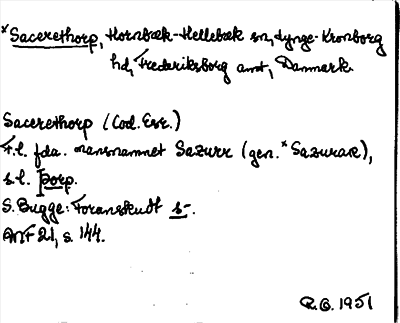 *Sacerethorp, Hornbæk-Hellebæk sn, Lynge-Kronborg
hd, Frederiksborg amt, Danmark.
Sacerethorp (Cod. Esr.)
F.l. fda. mansnamnet Sazurr (gen. *Sazurar),
s.l. þorp.
S. Bugge: Foranskudt s-.
ANF 21, s. 144.
R. G. 1951